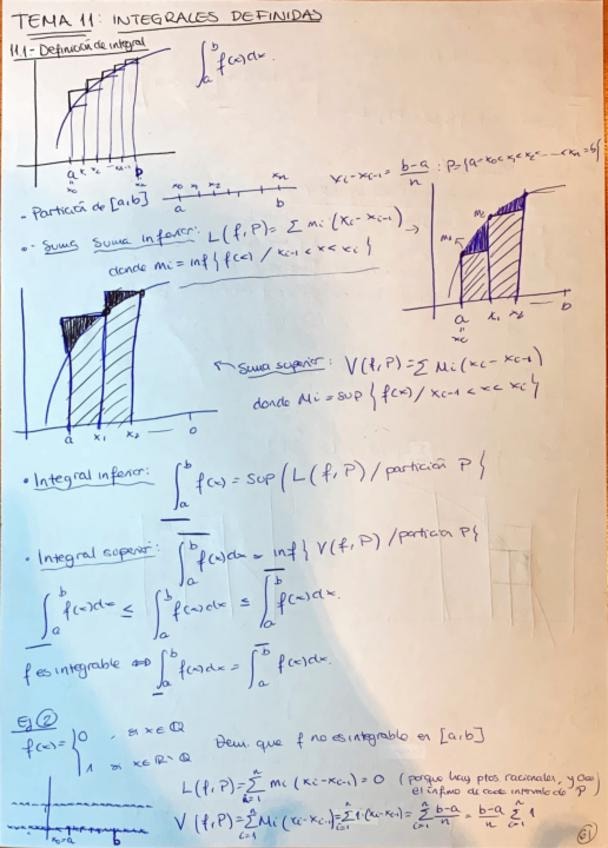 TEMA 11: INTEGRALES DEFINIDAS
11.1- Definición de integral
∫_a^b f(x)dx.
a x₁ x₂ ... xₙ₋₁ b
x₀ xₙ
x₀ x₁ x₂ xₙ
- Partición de [a,b]
a b
xᵢ - xᵢ₋₁ = (b-a)/n : P={a=x₀<x₁<x₂<.....<xₙ=b}
- Suma Suma inferior: L(f,P)= Σ mᵢ·(xᵢ - xᵢ₋₁) →
donde mᵢ = inf { f(x) / xᵢ₋₁ < x < xᵢ }
m₁ m₂
a x₁ x₂ — b
x₀
Suma superior: V(f,P) = Σ Mᵢ(xᵢ - xᵢ₋₁)
donde Mᵢ = sup { f(x) / xᵢ₋₁ < x < xᵢ }
a x₁ x₂ — b
• Integral inferior: ∫_a^b f(x) = sup { L(f,P) / partición P }
• Integral superior: ∫_a^b f(x)dx = inf { V(f,P) / partición P }
∫_a^b f(x)dx ≤ ∫_a^b f(x)dx ≤ ∫_a^b f(x)dx.
f es integrable ⇔ ∫_a^b f(x)dx = ∫_a^b f(x)dx.
Ej ②
f(x) = { 0 , si x∈Q
1 si x∈R-Q
Dem. que f no es integrable en [a,b]
L(f,P)= Σ mᵢ(xᵢ - xᵢ₋₁) = 0 (porque hay ptos racionales, y 0 es
el ínfimo de cada intervalo de P
V(f,P)= Σ Mᵢ(xᵢ - xᵢ₋₁) = Σ 1·(xᵢ - xᵢ₋₁) = Σ (b-a)/n = (b-a)/n Σ 1
x₀=a b
61